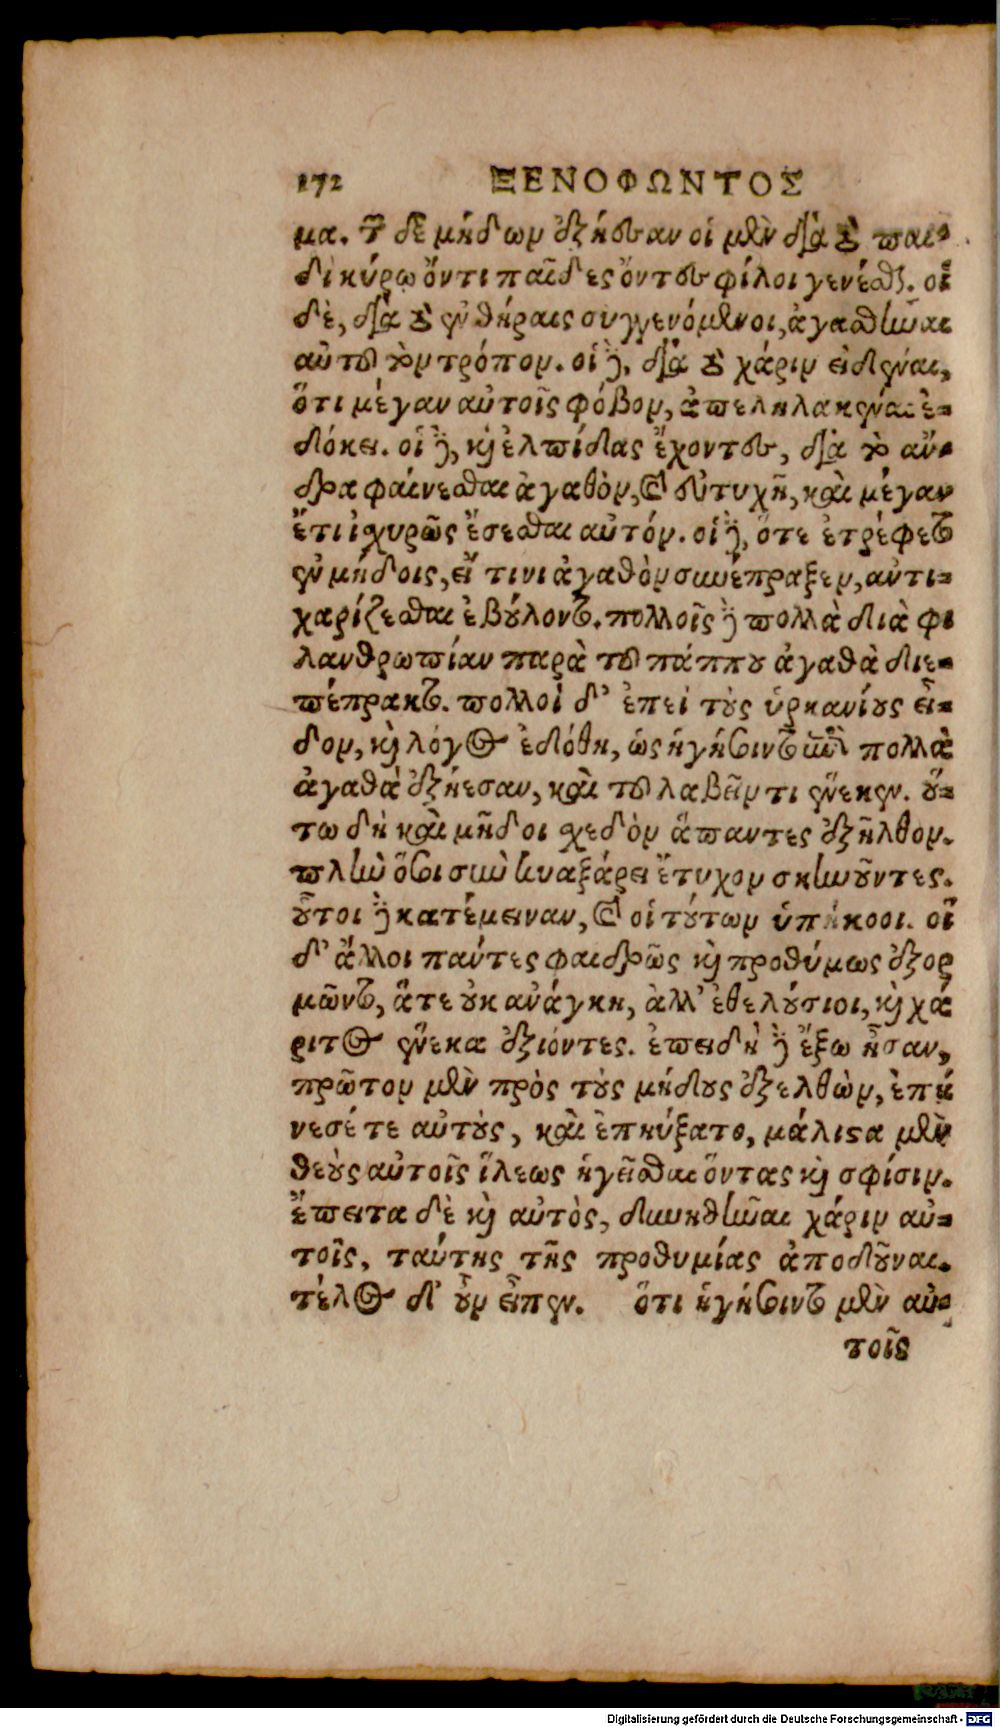 172 ΞΕΝΟΦΩΝΤΟΣ
μα. τῶν δὲ μήδων ἐξῄεσαν οἱ μὲν διὰ τὸ παι-
δὶ κύρῳ ὄντι παῖδες ὄντες φίλοι γενέσθαι. οἱ
δὲ, διὰ τὸ ἐν θήραις συγγενόμενοι, ἀγασθῆναι
αὐτοῦ τὸν τρόπον. οἱ δὲ, διὰ τὸ χάριν εἰδέναι,
ὅτι μέγαν αὐτοῖς φόβον, ἀπεληλακέναι ἐ-
δόκει. οἱ δὲ, καὶ ἐλπίδας ἔχοντες, διὰ τὸ ἄν-
δρα φαίνεσθαι ἀγαθὸν, καὶ εὐτυχῆ, καὶ μέγαν
ἔτι ἰσχυρῶς ἔσεσθαι αὐτόν. οἱ δὲ, ὅτε ἐτρέφετο
ἐν μήδοις, εἴ τινι ἀγαθὸν συνέπραξεν, ἀντι-
χαρίζεσθαι ἐβούλοντο. πολλοῖς δὲ πολλὰ διὰ φι
λανθρωπίαν παρὰ τοῦ πάππου ἀγαθὰ διε-
πέπρακτο. πολλοὶ δ' ἐπεὶ τοὺς ὑρκανίους εἶ-
δον, καὶ λόγος ἐδόθη, ὡς ἡγήσοιντο ἐπὶ πολλὰ
ἀγαθὰ ἐξῄεσαν, καὶ τοῦ λαβεῖν τι ἕνεκεν. οὕ-
τω δὴ καὶ μῆδοι σχεδὸν ἅπαντες ἐξῆλθον.
πλὴν ὅσοι σὺν κυαξάρει ἔτυχον σκηνοῦντες.
οὗτοι δὲ κατέμειναν, καὶ οἱ τούτων ὑπήκοοι. οἱ
δ' ἄλλοι πάντες φαιδρῶς καὶ προθύμως ἐξορ
μῶντο, ἅτε οὐκ ἀνάγκῃ, ἀλλ' ἐθελούσιοι, καὶ χά
ριτος ἕνεκα ἐξιόντες. ἐπειδὴ δὲ ἔξω ἦσαν,
πρῶτον μὲν πρὸς τοὺς μήδους ἐξελθὼν, ἐπῄ
νεσέ τε αὐτοὺς, καὶ ἐπηύξατο, μάλιστα μὲν
θεοὺς αὐτοῖς ἵλεως ἡγεῖσθαι ὄντας καὶ σφίσιν.
ἔπειτα δὲ καὶ αὐτὸς, δυνηθῆναι χάριν αὐ-
τοῖς, ταύτης τῆς προθυμίας ἀποδοῦναι.
τέλος δ' οὖν εἶπεν. ὅτι ἡγήσοιντο μὲν αὐ-
τοῖς
Digitalisierung gefördert durch die Deutsche Forschungsgemeinschaft - DFG